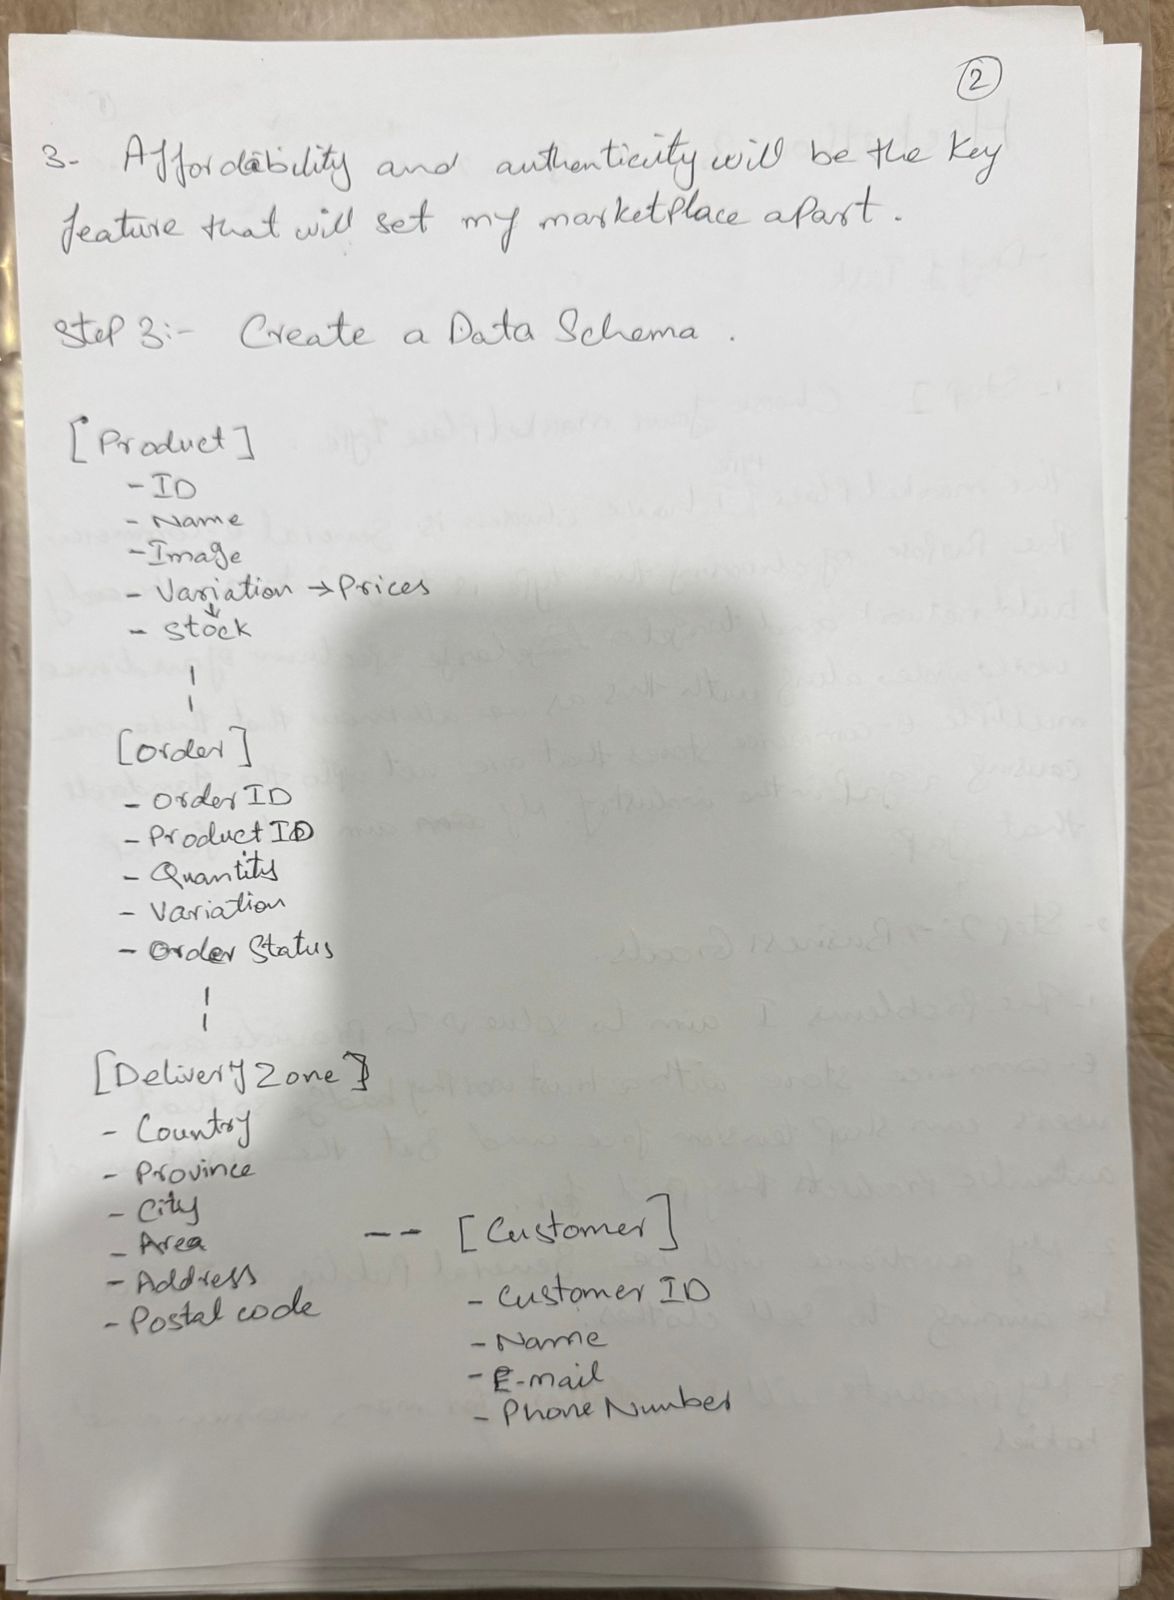 2
3- Affordability and authenticity will be the key
feature that will set my marketplace apart.
Step 3:- Create a Data Schema.
[Product]
- ID
- Name
- Image
- Variation → Prices
↓
- Stock
[Order]
- Order ID
- Product ID
- Quantity
- Variation
- Order Status
[Delivery Zone]
- Country
- Province
- City
- Area
- Address
- Postal code
-- [Customer]
- Customer ID
- Name
- E-mail
- Phone Number